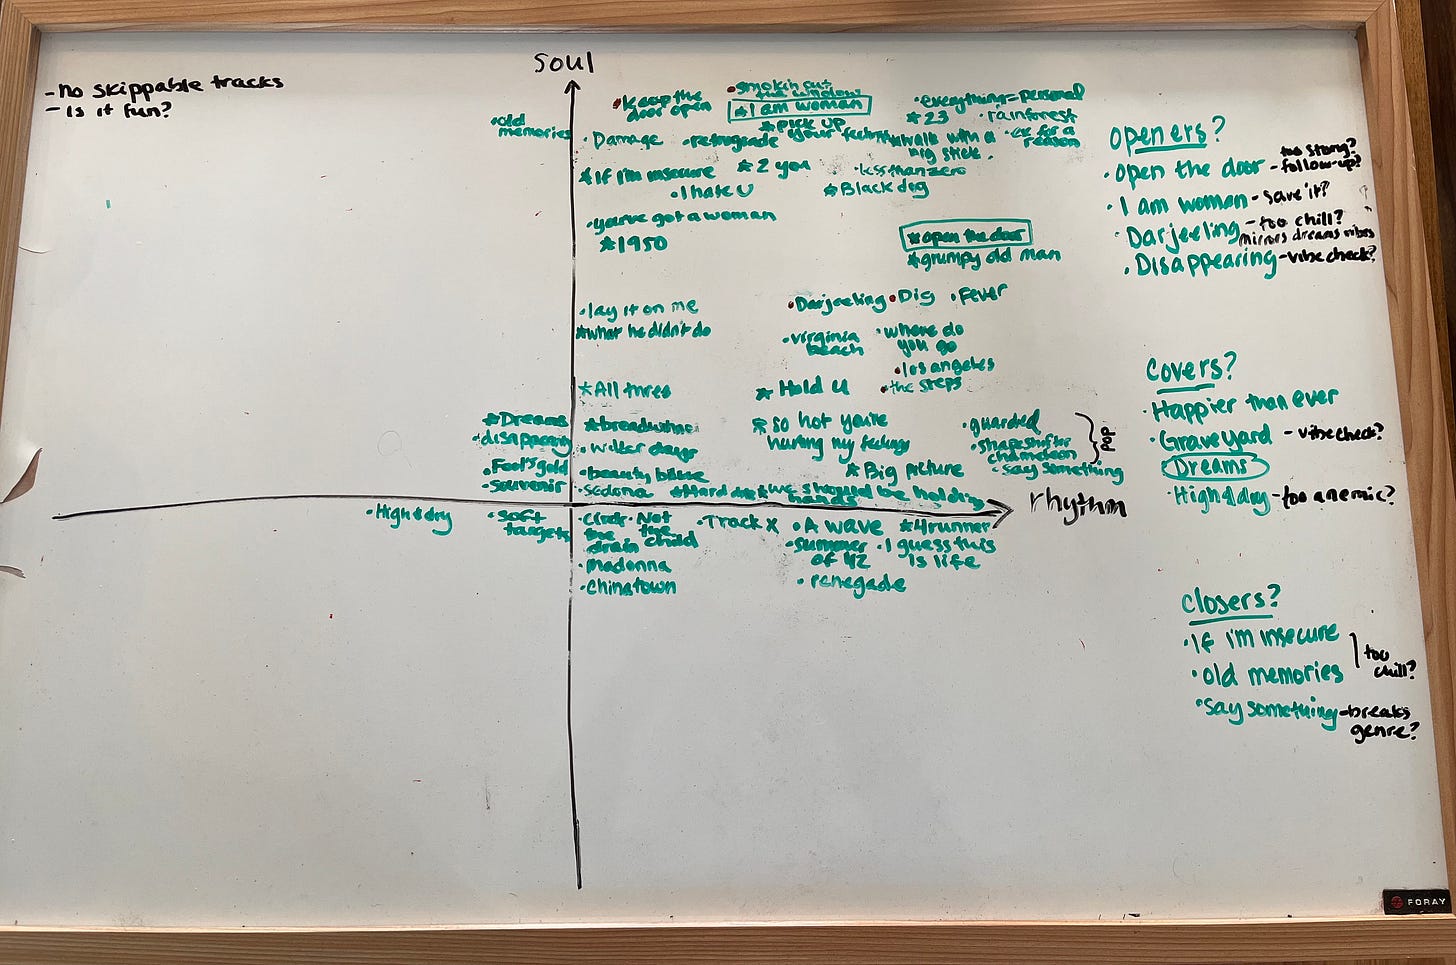 - no skippable tracks
- Is it fun?
soul
rhythm
• old
memories
• keep the
door open
• smokin out
the window
★ I am woman
★ pick up
your feelings
• everything = personal
★ 23
• rainforest
• for a
reason
• Damage
• retrograde
★ walk with a
big stick
★ If I'm insecure
★ 2 you
• less than zero
• I hate U
★ Black dog
• you've got a woman
★ 1950
★ open the door
★ grumpy old man
• lay it on me
★ what he didn't do
• Darjeeling
• Dig
• Fever
• virginia
beach
• where do
you go
• los angeles
• the steps
★ All three
★ Hold U
★ Dreams
• disappearing
• Fool's gold
• souvenir
★ breadwinner
• wilder days
• beauty blue
• sedona
★ Hard drive
★ we should be holding
hands
★ so hot you're
hurting my feelings
★ Big picture
• guarded
• shapeshifter
chameleon
• say something
POP
• High & dry
• soft
targets
• circle
the
drain
• Not
the
child
• Madonna
• Chinatown
• Track X
• A wave
★ 4runner
• summer
of 42
• I guess this
is life
• renegade
openers?
• open the door - too strong?
- follow-up?
• I am woman - save it?
• Darjeeling - too chill?
mirrors dreams vibes
• Disappearing - vibe check?
covers?
• Happier than ever
• Graveyard - vibe check?
• Dreams
• High & dry - too anemic?
closers?
• If I'm insecure
• old memories
too
chill?
• say something - breaks
genre?
FORAY